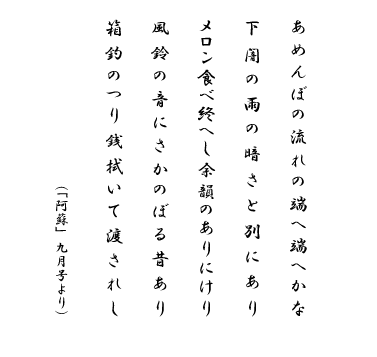 あめんぼの流れの端へ端へかな
下闇の雨の暗さと別にあり
メロン食べ終へし余韻のありにけり
風鈴の音にさかのぼる昔あり
箱釣のつり銭拭いて渡されし
（「阿蘇」九月号より）